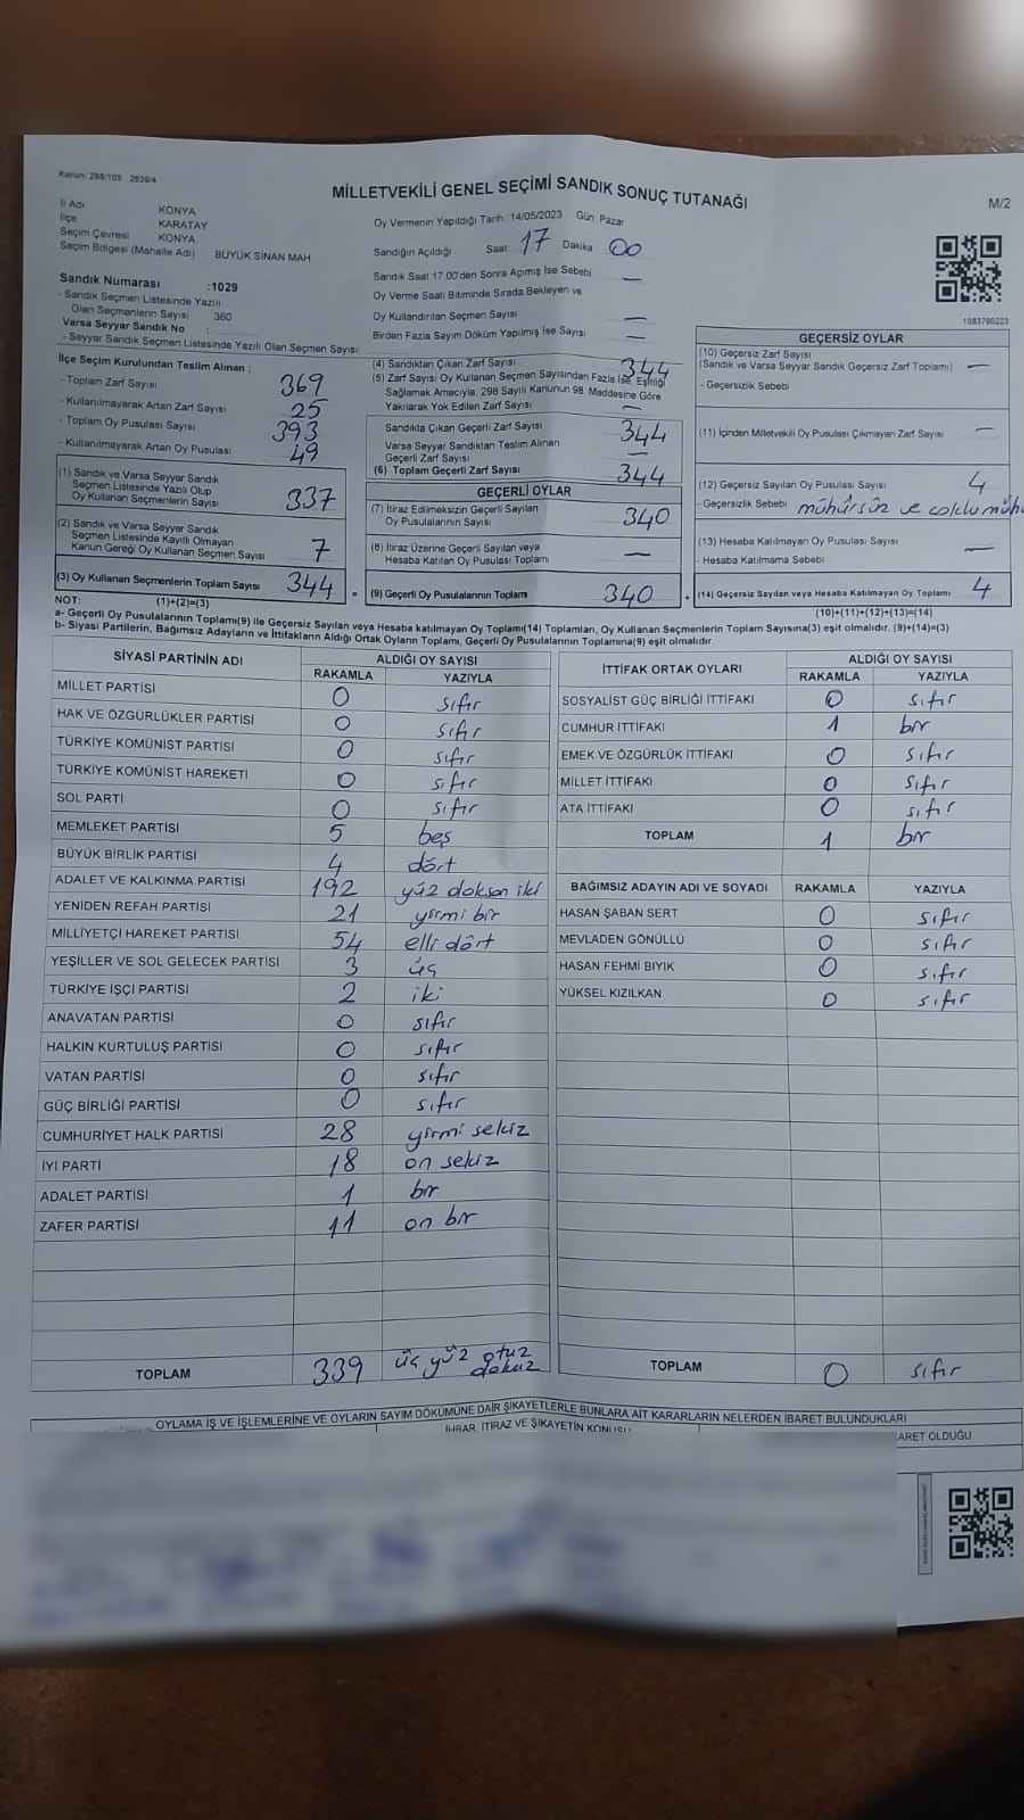 Kanun: 298/105 2839/4
MİLLETVEKİLİ GENEL SEÇİMİ SANDIK SONUÇ TUTANAĞI
M/2
İl Adı KONYA
İlçe KARATAY
Seçim Çevresi KONYA
Seçim Bölgesi (Mahalle Adı) BÜYÜK SİNAN MAH
Oy Vermenin Yapıldığı Tarih: 14/05/2023 Gün Pazar
Sandığın Açıldığı Saat 17 Dakika 00
Sandık Saat 17.00'den Sonra Açılmış İse Sebebi —
Oy Verme Saati Bitiminde Sırada Bekleyen ve
Oy Kullandırılan Seçmen Sayısı —
Birden Fazla Sayım Döküm Yapılmış İse Sayısı —
Sandık Numarası :1029
- Sandık Seçmen Listesinde Yazılı
Olan Seçmenlerin Sayısı 360
Varsa Seyyar Sandık No :
- Seyyar Sandık Seçmen Listesinde Yazılı Olan Seçmen Sayısı
1083790223
İlçe Seçim Kurulundan Teslim Alınan :
- Toplam Zarf Sayısı 369
- Kullanılmayarak Artan Zarf Sayısı 25
- Toplam Oy Pusulası Sayısı 393
- Kullanılmayarak Artan Oy Pusulası 49
(1) Sandık ve Varsa Seyyar Sandık
Seçmen Listesinde Yazılı Olup
Oy Kullanan Seçmenlerin Sayısı 337
(2) Sandık ve Varsa Seyyar Sandık
Seçmen Listesinde Kayıtlı Olmayan
Kanun Gereği Oy Kullanan Seçmen Sayısı 7
(3) Oy Kullanan Seçmenlerin Toplam Sayısı 344
(4) Sandıktan Çıkan Zarf Sayısı 344
(5) Zarf Sayısı Oy Kullanan Seçmen Sayısından Fazla İse, Eşitliği
Sağlamak Amacıyla, 298 Sayılı Kanunun 98. Maddesine Göre
Yakılarak Yok Edilen Zarf Sayısı —
Sandıkta Çıkan Geçerli Zarf Sayısı 344
Varsa Seyyar Sandıktan Teslim Alınan
Geçerli Zarf Sayısı —
(6) Toplam Geçerli Zarf Sayısı 344
GEÇERLİ OYLAR
(7) İtiraz Edilmeksizin Geçerli Sayılan
Oy Pusulalarının Sayısı 340
(8) İtiraz Üzerine Geçerli Sayılan veya
Hesaba Katılan Oy Pusulası Toplamı —
= (9) Geçerli Oy Pusulalarının Toplamı 340
GEÇERSİZ OYLAR
(10) Geçersiz Zarf Sayısı
(Sandık ve Varsa Seyyar Sandık Geçersiz Zarf Toplamı) —
- Geçersizlik Sebebi
(11) İçinden Milletvekili Oy Pusulası Çıkmayan Zarf Sayısı —
(12) Geçersiz Sayılan Oy Pusulası Sayısı 4
- Geçersizlik Sebebi mühürsüz ve
(13) Hesaba Katılmayan Oy Pusulası Sayısı —
- Hesaba Katılmama Sebebi
+ (14) Geçersiz Sayılan veya Hesaba Katılmayan Oy Toplamı 4
NOT: (1)+(2)=(3)
(10)+(11)+(12)+(13)=(14)
a- Geçerli Oy Pusulalarının Toplamı(9) ile Geçersiz Sayılan veya Hesaba katılmayan Oy Toplamı(14) Toplamları, Oy Kullanan Seçmenlerin Toplam Sayısına(3) eşit olmalıdır. (9)+(14)=(3)
b- Siyasi Partilerin, Bağımsız Adayların ve İttifakların Aldığı Ortak Oyların Toplamı, Geçerli Oy Pusulalarının Toplamına(9) eşit olmalıdır.
SİYASİ PARTİNİN ADI ALDIĞI OY SAYISI
RAKAMLA YAZIYLA
MİLLET PARTİSİ 0 sıfır
HAK VE ÖZGÜRLÜKLER PARTİSİ 0 sıfır
TÜRKİYE KOMÜNİST PARTİSİ 0 sıfır
TÜRKİYE KOMÜNİST HAREKETİ 0 sıfır
SOL PARTİ 0 sıfır
MEMLEKET PARTİSİ 5 beş
BÜYÜK BİRLİK PARTİSİ 4 dört
ADALET VE KALKINMA PARTİSİ 192 yüz doksan iki
YENİDEN REFAH PARTİSİ 21 yirmi bir
MİLLİYETÇİ HAREKET PARTİSİ 54 elli dört
YEŞİLLER VE SOL GELECEK PARTİSİ 3 üç
TÜRKİYE İŞÇİ PARTİSİ 2 iki
ANAVATAN PARTİSİ 0 sıfır
HALKIN KURTULUŞ PARTİSİ 0 sıfır
VATAN PARTİSİ 0 sıfır
GÜÇ BİRLİĞİ PARTİSİ 0 sıfır
CUMHURİYET HALK PARTİSİ 28 yirmi sekiz
İYİ PARTİ 18 on sekiz
ADALET PARTİSİ 1 bir
ZAFER PARTİSİ 11 on bir
TOPLAM 339 üç yüz otuz dokuz
İTTİFAK ORTAK OYLARI ALDIĞI OY SAYISI
RAKAMLA YAZIYLA
SOSYALİST GÜÇ BİRLİĞİ İTTİFAKI 0 sıfır
CUMHUR İTTİFAKI 1 bir
EMEK VE ÖZGÜRLÜK İTTİFAKI 0 sıfır
MİLLET İTTİFAKI 0 sıfır
ATA İTTİFAKI 0 sıfır
TOPLAM 1 bir
BAĞIMSIZ ADAYIN ADI VE SOYADI RAKAMLA YAZIYLA
HASAN ŞABAN SERT 0 sıfır
MEVLADEN GÖNÜLLÜ 0 sıfır
HASAN FEHMİ BIYIK 0 sıfır
YÜKSEL KIZILKAN 0 sıfır
TOPLAM 0 sıfır
OYLAMA İŞ VE İŞLEMLERİNE VE OYLARIN SAYIM DÖKÜMÜNE DAİR ŞİKAYETLERLE BUNLARA AİT KARARLARIN NELERDEN İBARET BULUNDUKLARI
İHBAR, İTİRAZ VE ŞİKAYETİN KONUSU
ARET OLDUĞU